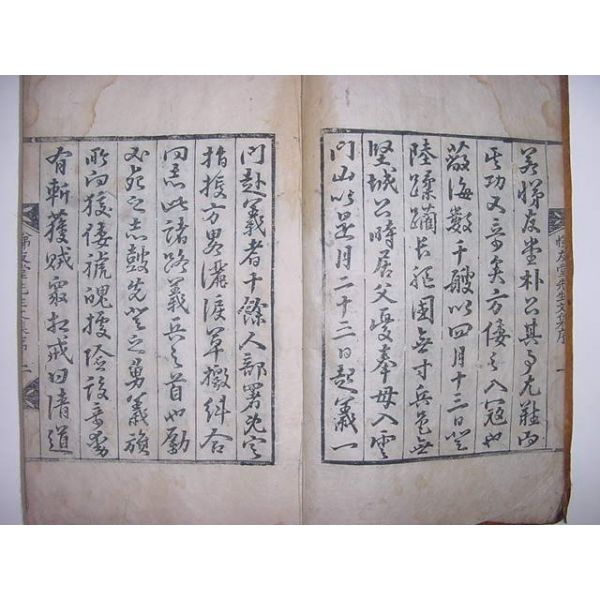 若悌友堂朴公其事尤難而
其功又奇矣方倭之入寇也
蔽海數千艘以四月十三日登
陸蹂躪長驅國無寸兵邑無
堅城公時居父憂奉母入雲
門山以是月二十三日起義一
門赴義者十餘人部署先定
指授方畧灑淚草檄糾合
同志此諸路義兵之首也勵
必死之志鼓先登之勇義旗
所向狡倭褫魄據險設奇多
有斬獲賊衆相戒曰清道
悌友堂先生文集序 一